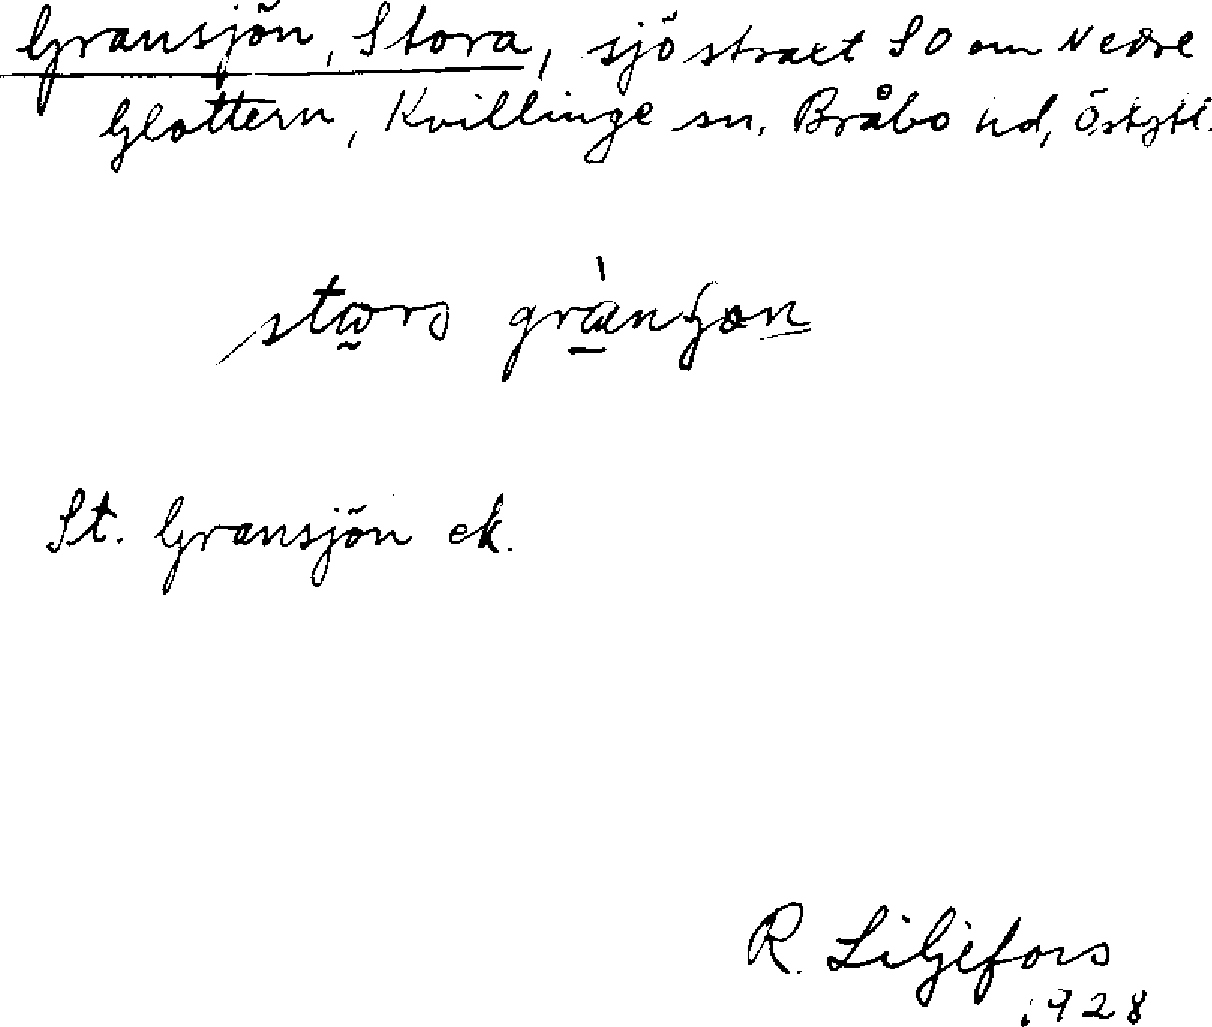 Gransjön, Stora, sjö straxt SO om Nedre
Glottern, Kvillinge sn, Bråbo hd, Östgtl.
St. Gransjön ek.
R. Liljefors
1928